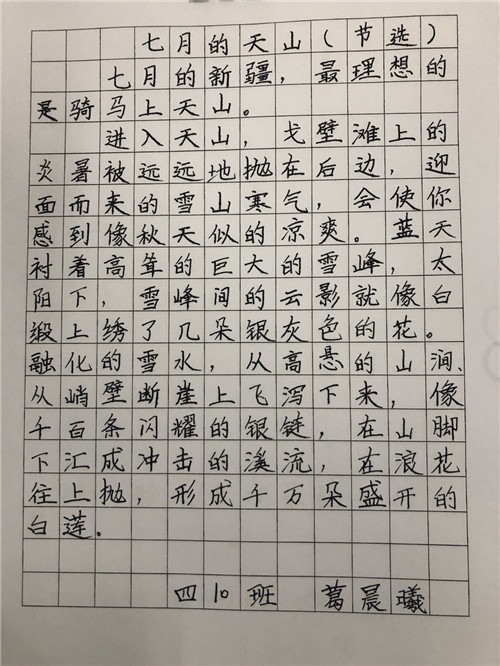 七月的天山(节选)
七月的新疆,最理想的
是骑马上天山。
进入天山,戈壁滩上的
炎暑被远远地抛在后边,迎
面而来的雪山寒气,会使你
感到像秋天似的凉爽。蓝天
衬着高耸的巨大的雪峰,太
阳下,雪峰间的云影就像白
缎上绣了几朵银灰色的花。
融化的雪水,从高悬的山涧、
从峭壁断崖上飞泻下来,像
千百条闪耀的银链,在山脚
下汇成冲击的溪流,在浪花
往上抛,形成千万朵盛开的
白莲。
四10班 葛晨曦